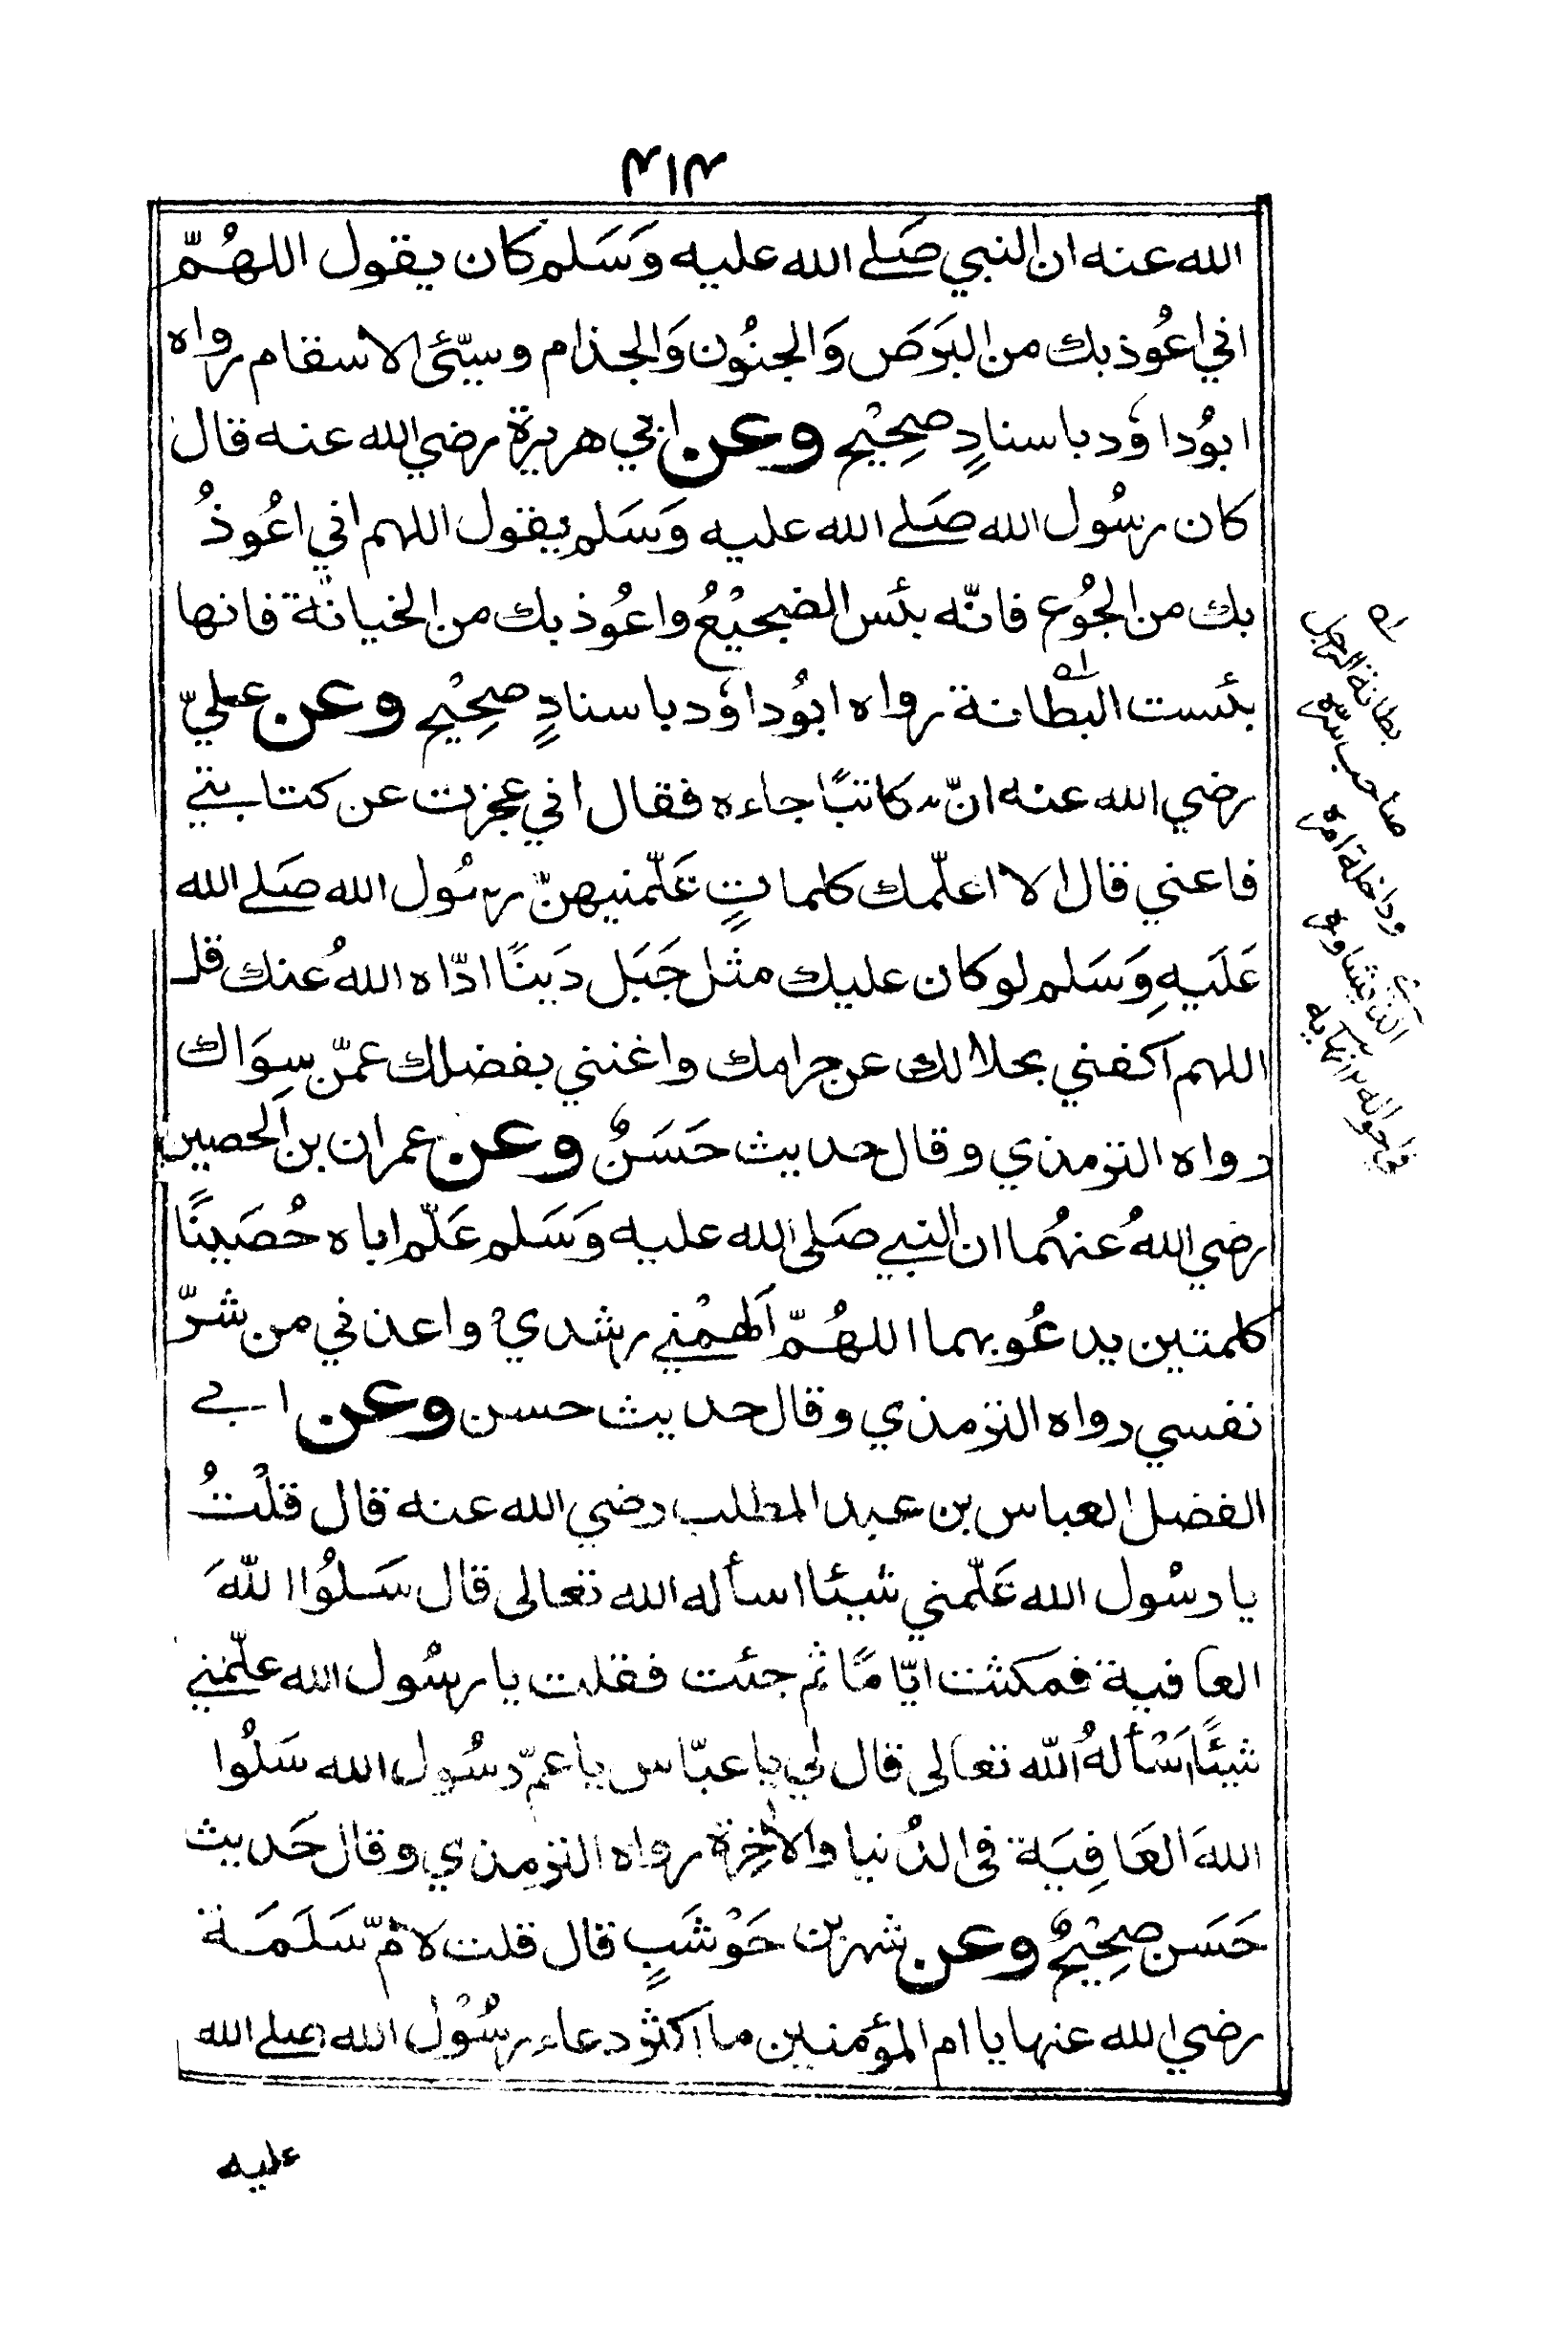 ٤١٤
الله عنه ان النبي صَلے الله عليه وَسَلم كان يقول اللهُمّ
اني اعُوذ بك من البَرَصَ وَالجنُون وَالجذام وسيّئ الاسقام رواه
ابوُداوٗد باسنادٍ صحِيْحٍ وعن ابي هريرة رضي الله عنه قال
كان رسُول الله صَلے الله عليه وَسَلم يقول اللهم اني اعُوذُ
بك من الجُوع فانّه بئس الضجيْعُ واعُوذ بك من الخيانة فانها
بئست البطانة رواه ابوُداوٗد باسنادٍ صحِيْحٍ وعن عليّ
رضي الله عنه انّ كاتبًا جاءه فقال اني عجزت عن كتابتي
فاعني قال الا اعلّمك كلماتٍ عَلّمنيهنّ رسُول الله صَلے الله
عَلَيهِ وَسَلم لو كان عليك مثل جَبَل دَينًا ادّاه اللهُ عنك قل
اللهم اكفني بحلالك عن حرامك واغنني بفضلك عمّن سِوَاك
رواه الترمذي وقال حديث حَسَنٌ وعن عمران بن الحصين
رضي اللهُ عنهُما ان النبي صَلى الله عليه وَسَلم عَلّم اباه حُصَينًا
كلمتين يدعُو بهما اللهُمّ اَلهمْني رشديْ واعذني من شرّ
نفسي رواه الترمذي وقال حديث حسن وعن ابے
الفضل العباس بن عبد المطلب رضي الله عنه قال قلْتُ
يا رسُول الله عَلّمني شيئا اسأله الله تعالى قال سَلُوا اللهَ
العافية فمكثت ايّامًا ثم جئت فقلت يا رسُول الله علّمني
شيئًا اَسْألهُ الله تعالى قال لي يا عبّاس يا عمّ رسُول الله سَلُوا
اللهَ العَافِيَة فى الدُنيا والاٰخِرة رواه الترمذي وقال حَديث
حَسَن صحِيْحٌ وعن شهر بن حَوْشَبٍ قال قلت لامّ سَلَمَة
رضي الله عنها يا ام المؤمنين ما اكثر دعاء رسُوْل الله صلے الله
عليه
بطانة الرجل
صاحب سرّه
وداخلة امره
الذي يشاوره
في احواله ١٢ نهايه